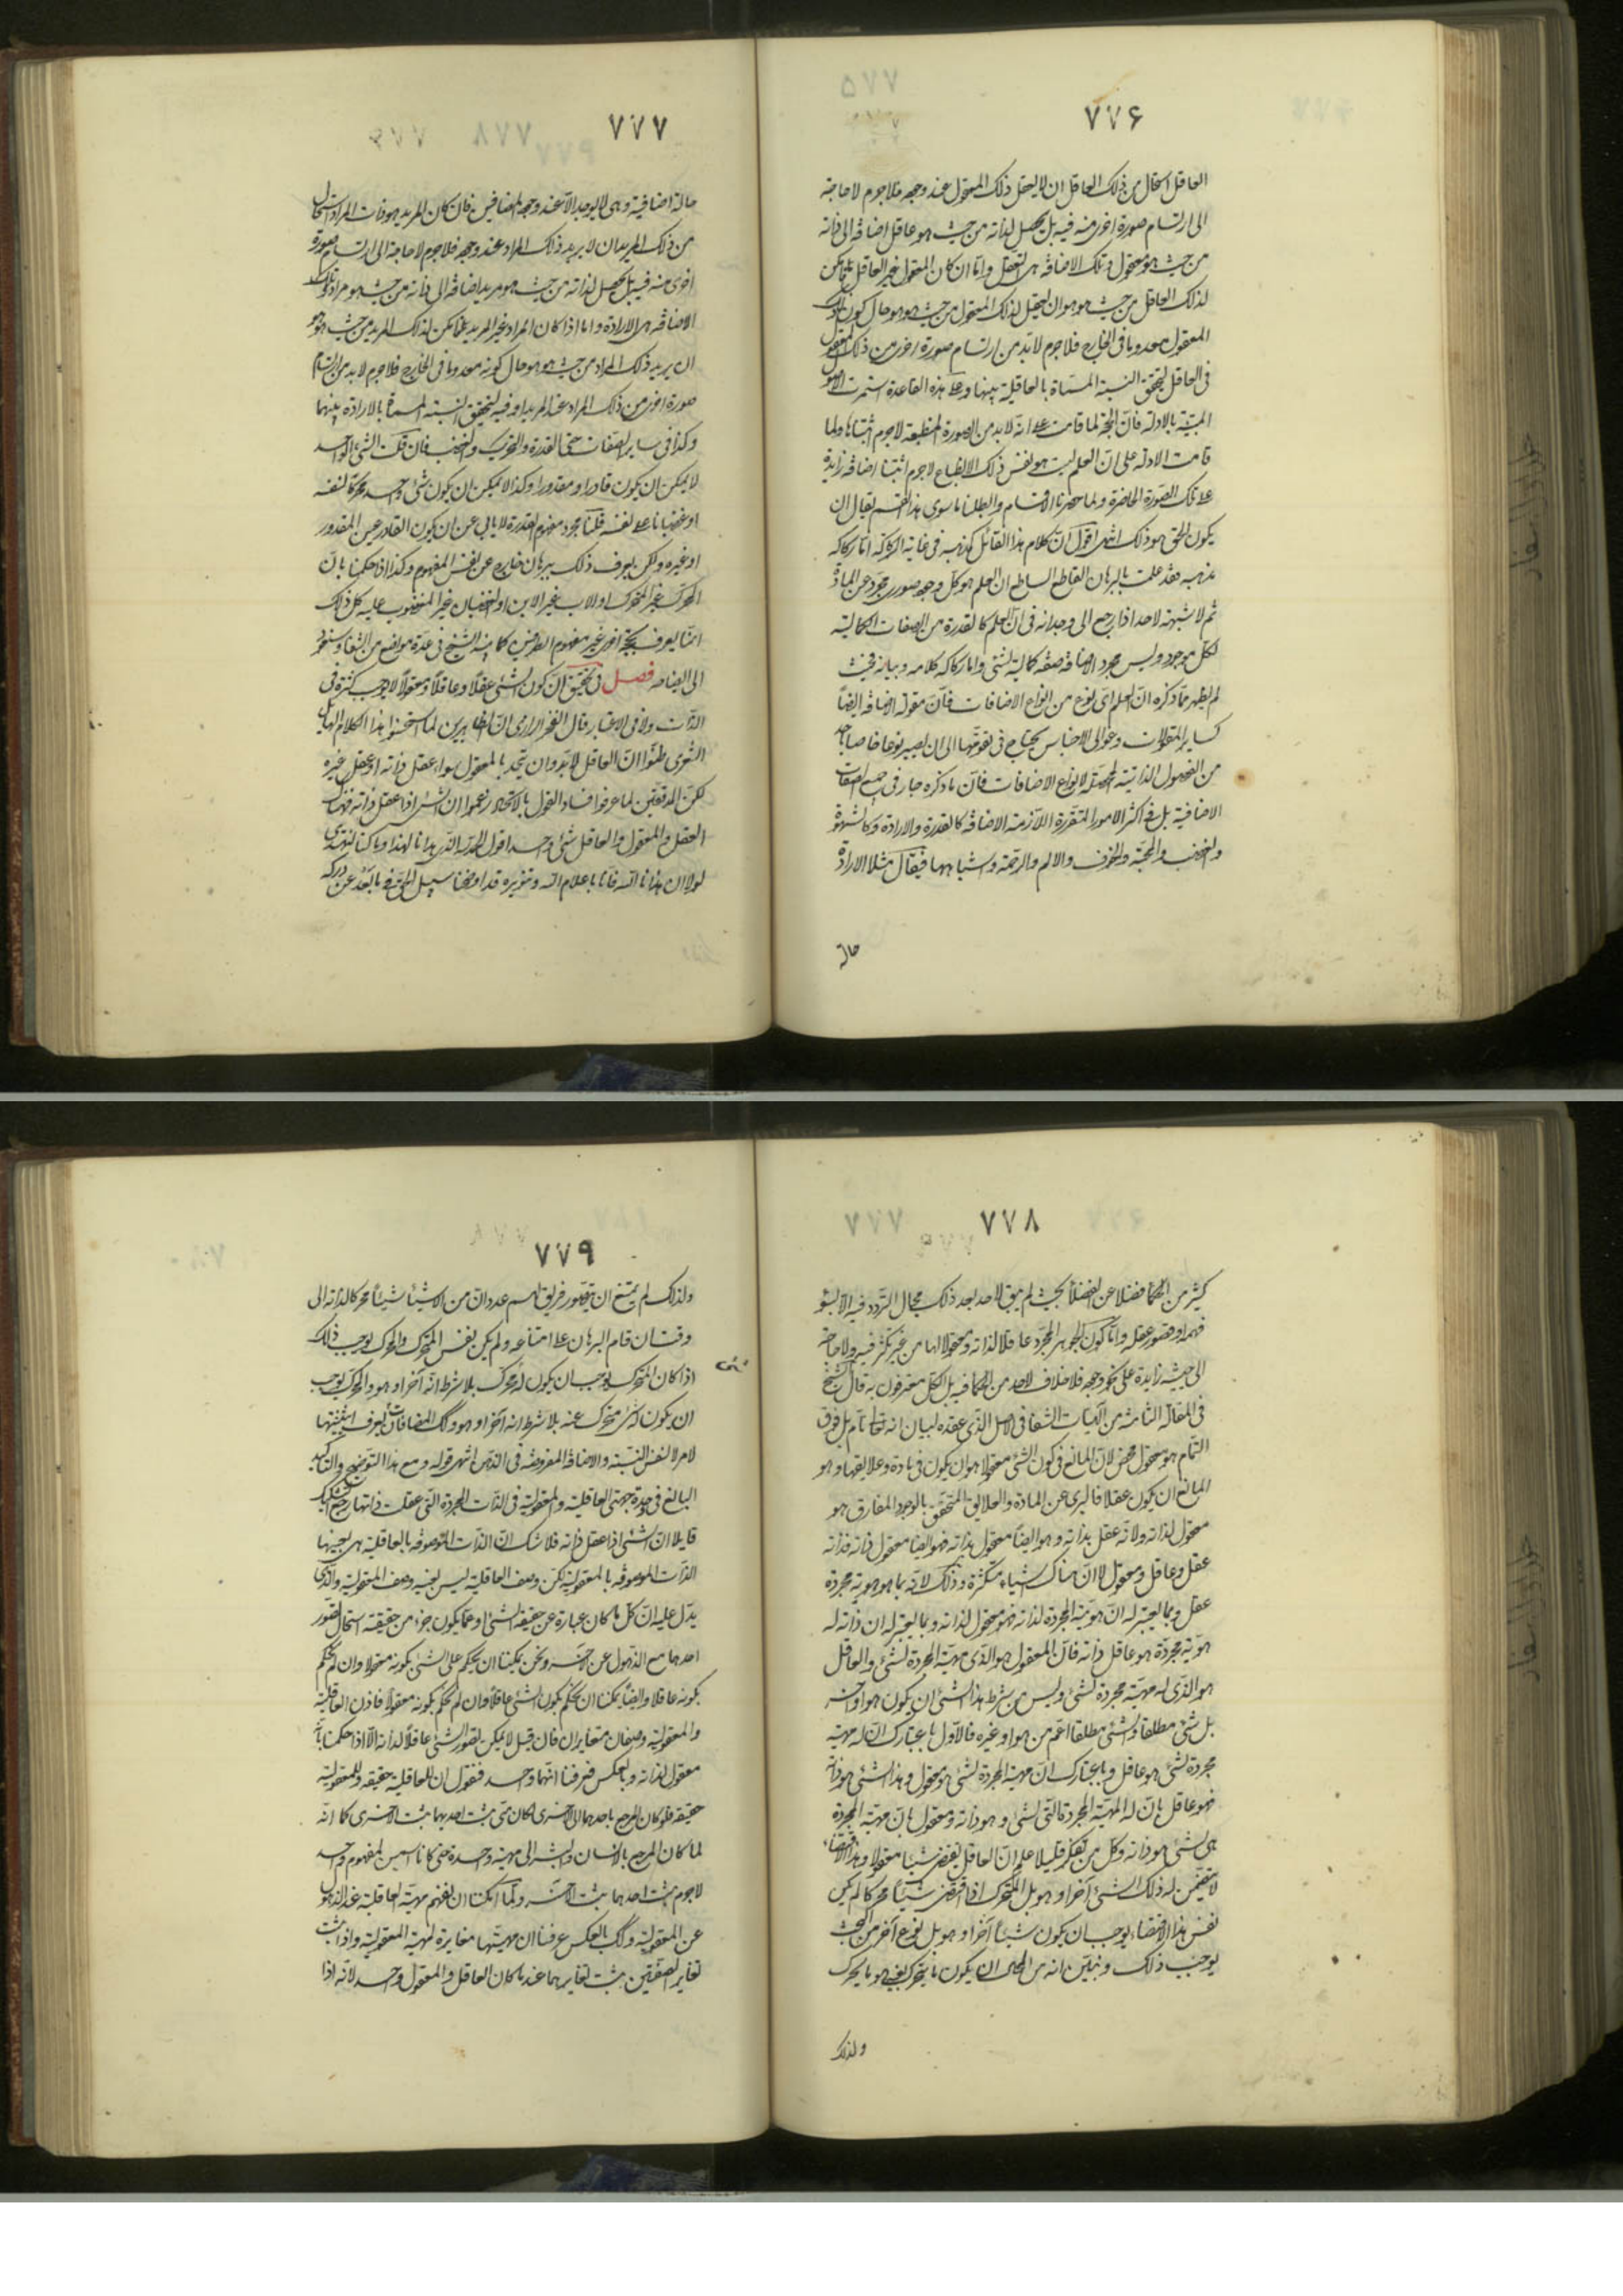 ٧٧۶
العاقل استحال من ذلك العاقل ان لا يعقل ذلك المعقول عند وجوده فلاجرم لا حاجة
الى ارتسام صورة اخرى منه فيه بل يحصل لذاته من حيث هو عاقل اضافة الى ذاته
من حيث هو معقول و تلك الاضافة هى التعقل و امّا ان كان المعقول غير العاقل فيمكن
لذلك العاقل من حيث هو هو ان يعقل ذلك المعقول من حيث هو هو حال كون ذلك
المعقول معدوما فى الخارج فلاجرم لابد من ارتسام صورة اخرى من ذلك المعقول
فى العاقل ليتحقق النسبة المسماة بالعاقلية بينهما و على هذه القاعدة استمرت الاصول
المبنيّة بالادلة فانّ الحجّة لما قامت على انّه لابد من الصورة المنطبعة لاجرم اثبتناها و لما
قامت الادلة على انّ العلم ليس هو نفس ذلك الانطباع لاجرم اثبتنا اضافة زايدة
على تلك الصورة الحاضرة و لما حصرنا الاقسام و ابطلنا ما سوى هذا القسم تعيّن ان
يكون الحق هو ذلك انتهى اقول انّ كلام هذا القائل كمذهبه فى غاية الركاكة امّا ركاكة
مذهبه فقد علمت بالبرهان القاطع الساطع ان العلم هو كل وجود صورى مجرّد عن المادة
ثم لا شبهة لاحد اذا رجع الى وجدانه فى انّ العلم كالقدرة من الصفات الكمالية
لكل موجود و ليس مجرد الاضافة صفة كمالية لشئ و اما ركاكة كلامه و بيانه فحيث
لم يظهر ممّا ذكره انّ العلم اى نوع من انواع الاضافات فانّ مقولة الاضافة ايضاً
كساير المقولات و عوالى الاجناس يحتاج فى تقوّمها الى ان يصير نوعا خاصا باحد
من الفصول الذاتية المحصّلة لانواع الاضافات فانّ ما ذكره جار فى جميع الصفات
الاضافية بل فى اكثر الامور المتقررة اللازمة الاضافة كالقدرة و الارادة و كالشهوة
و الغضب و المحبّة و الخوف و الالم و الرحمة و اشباهها فيقال مثلا الارادة
حالة
٧٧٧
حالة اضافية و هى لا يوجد الاّ عند وجود المضافين فان كان المريد هو ذات المراد استحال
من ذلك المريد ان لا يريد ذلك المراد عند وجوده فلاجرم لا حاجة الى ارتسام صورة
اخرى منه فيه بل يحصل لذاته من حيث هو مريد اضافة الى ذاته من حيث هو مراد و تلك
الاضافة هى الارادة و اما اذا كان المراد غير المريد فيمكن لذلك المريد من حيث هو هو
ان يريد ذلك المراد من حيث هو هو حال كونه معدوما فى الخارج فلاجرم لابد من ارتسام
صورة اخرى من ذلك المراد عند المريد او فيه ليتحقق النسبة المسماة بالارادة بينهما
و كذا فى ساير الصفات حتى القدرة و التحريك و الغضب فان قلت الشئ الواحد
لا يمكن ان يكون قادرا و مقدورا و كذا لا يمكن ان يكون شئ واحد محركا لنفسه
او غضبانا على نفسه قلنا مجرد مفهوم القدرة لا يابى عن ان يكون القادر عين المقدور
او غيره و لكن يعرف ذلك ببرهان خارج عن نفس المفهوم و كذا اذا حكمنا بانّ
المحرك غير المتحرك او الاب غير الابن او الغضبان غير المغضوب عليه كل ذلك
انّما يعرف بحجة اخرى غير مفهوم الطرفين كما بينه الشيخ فى عدة مواضع من الشفا و سنعود
الى ايضاحه فصل فى تحقيق انّ كون الشئ عقلاً و عاقلاً و معقولاً لا يوجب كثرة فى
الذات و لا فى الاعتبار قال الفخر الرازى انّ الظاهريين لما استحسنوا هذا الكلام الهايل
الشعرى ظنوا انّ العاقل لابد و ان يتحد بالمعقول سواء عقل ذاته او عقل غيره
لكنّ المدققين لما عرفوا فساد القول بالاتحاد زعموا ان الشئ اذا عقل ذاته فهناك
العقل و المعقول و العاقل شئ واحد اقول الحمد لله الذى هدانا لهذا و ما كنا لنهتدى
لولا ان هدانا الله فانّا باعلام الله و تنويره قد اوضحنا سبيل الحق فيما بعّد عن دركه
٧٧٨
كثير من الحكما فضلا عن الفضلا بحيث لم يبق لاحد بعد ذلك مجال التردد فيه الاّ لسوء
فهمه او قصور عقله و امّا كون الجوهر المجرد عاقلا لذاته و معقولا لها من غير تكثر فيه و لا حاجة
الى حيثية زايدة على نحو وجوده فلا خلاف لاحد من الحكما فيه بل الكل معترفون به قال الشيخ
فى المقالة الثامنة من الهيّات الشفا فى الفصل الذى عقده لبيان انه تعالى تامّ بل فوق
التمام هو معقول محض لانّ المانع فى كون الشئ معقولا هو ان يكون فى مادة و علايقها و هو
المانع ان يكون عقلا فالبرى عن المادة و العلايق المتحقق بالوجود المفارق هو
معقول لذاته و لانّه عقل بذاته و هو ايضاً معقول بذاته فهو ايضا معقول ذاته فذاته
عقل و عاقل و معقول لا انّ هناك اشياء متكثرة و ذلك لانّه بما هو هوية مجردة
عقل و بما يعتبر له انّ هويته المجردة لذاته فهو معقول لذاته و بما يعتبر له ان ذاته له
هوية مجردة هو عاقل ذاته فانّ المعقول هو الذى مهيّته المجردة لشئ و العاقل
هو الذى له مهيّة مجردة لشئ و ليس من شرط هذا الشئ ان يكون هو او آخر
بل شئ مطلقا و الشئ مطلقا اعم من هو او غيره فالاول باعتبارك انّ له مهية
مجردة لشئ هو عاقل و باعتبارك انّ مهيته المجردة لشئ هو معقول و هذا الشئ هو ذاته
فهو عاقل بانّ له المهيّة المجردة التى لشئ و هو ذاته و معقول بانّ مهيته المجردة
هى لشئ هو ذاته و كل من تفكر قليلا علم انّ العاقل يقتضى شيئا معقولا و هذا الاقتضاء
لا يتضمّن ان ذلك الشئ آخر او هو بل المتحرك اذا اقتضى شيئاً محركا لم يكن
نفس هذا الاقتضاء يوجب ان يكون شيئاً آخر او هو بل نوع آخر من البحث
يوجب ذلك و يبيّن انه من المحال ان يكون ما يتحرك بعينه هو ما يحرك
و لذلك
٧٧٩
و لذلك لم يمتنع ان يتصور فريق لهم عدد انّ من الاشياء شيئاً محركا لذاته الى
وقت ان قام البرهان على امتناعه و لم يكن نفس المتحرك و المحرك يوجب ذلك
اذا كان المتحرك يوجب ان يكون له محرك بلا شرط انّه آخر او هو و المحرك يوجب
ان يكون له شئ متحرك عنه بلا شرط انه آخر او هو و كك المضافات يعرف اثنينيتها
لامر لا لنفس النسبة و الاضافة المفروضة فى الذهن انتهى قوله و مع هذا التوضيح و التاكيد
البالغ فى وحدة جهتى العاقلية و المعقولية فى الذات المجردة التى عقلت ذاتها
قايلا انّ الشئ اذا عقل ذاته فلا شك انّ الذات الموصوفة بالعاقلية هى بعينها
الذات الموصوفة بالمعقولية لكنّ وصف العاقلية ليس بعينه وصف المعقولية و الذى
يدلّ عليه انّ كل ما كان عبارة عن حقيقة الشئ او عما يكون جزء من حقيقته استحال تصور
احدهما مع الذهول عن الآخر و نحن يمكننا ان نحكم على الشئ بكونه معقولا و ان لم نحكم
بكونه عاقلا و ايضاً يمكننا ان نحكم بكون الشئ عاقلا و ان لم نحكم بكونه معقولا فاذن العاقلية
و المعقولية وصفان متغايران فان قيل لا يمكن تصور الشئ عاقلاً لذاته الاّ اذا حكمنا بانّه
معقول لذاته و بالعكس فعرفنا انّهما واحد فنقول ان للعاقلية حقيقة و للمعقولية
حقيقة فلو كان المرجع باحدهما الى الاخرى لكان متى ثبت احديهما ثبت الاخرى كما انّه
لما كان المرجع بالانسان و البشر الى مهية واحدة حتى كانا اسمين لمفهوم واحد
لاجرم متى ثبت احدهما ثبت الآخر و لمّا امكننا ان نفهم مهيّة العاقلية عند الذهول
عن المعقولية و كك بالعكس عرفنا ان مهيتها مغايرة لمهية المعقولية و اذا ثبت
تغاير الصفتين ثبت تغايرهما عند ما كان العاقل و المعقول واحد لانّه اذا